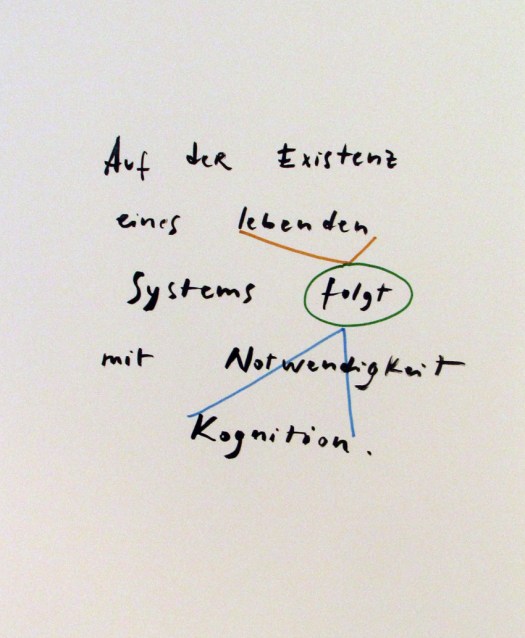 Auf der Existenz
eines lebenden
Systems folgt
mit Notwendigkeit
Kognition.